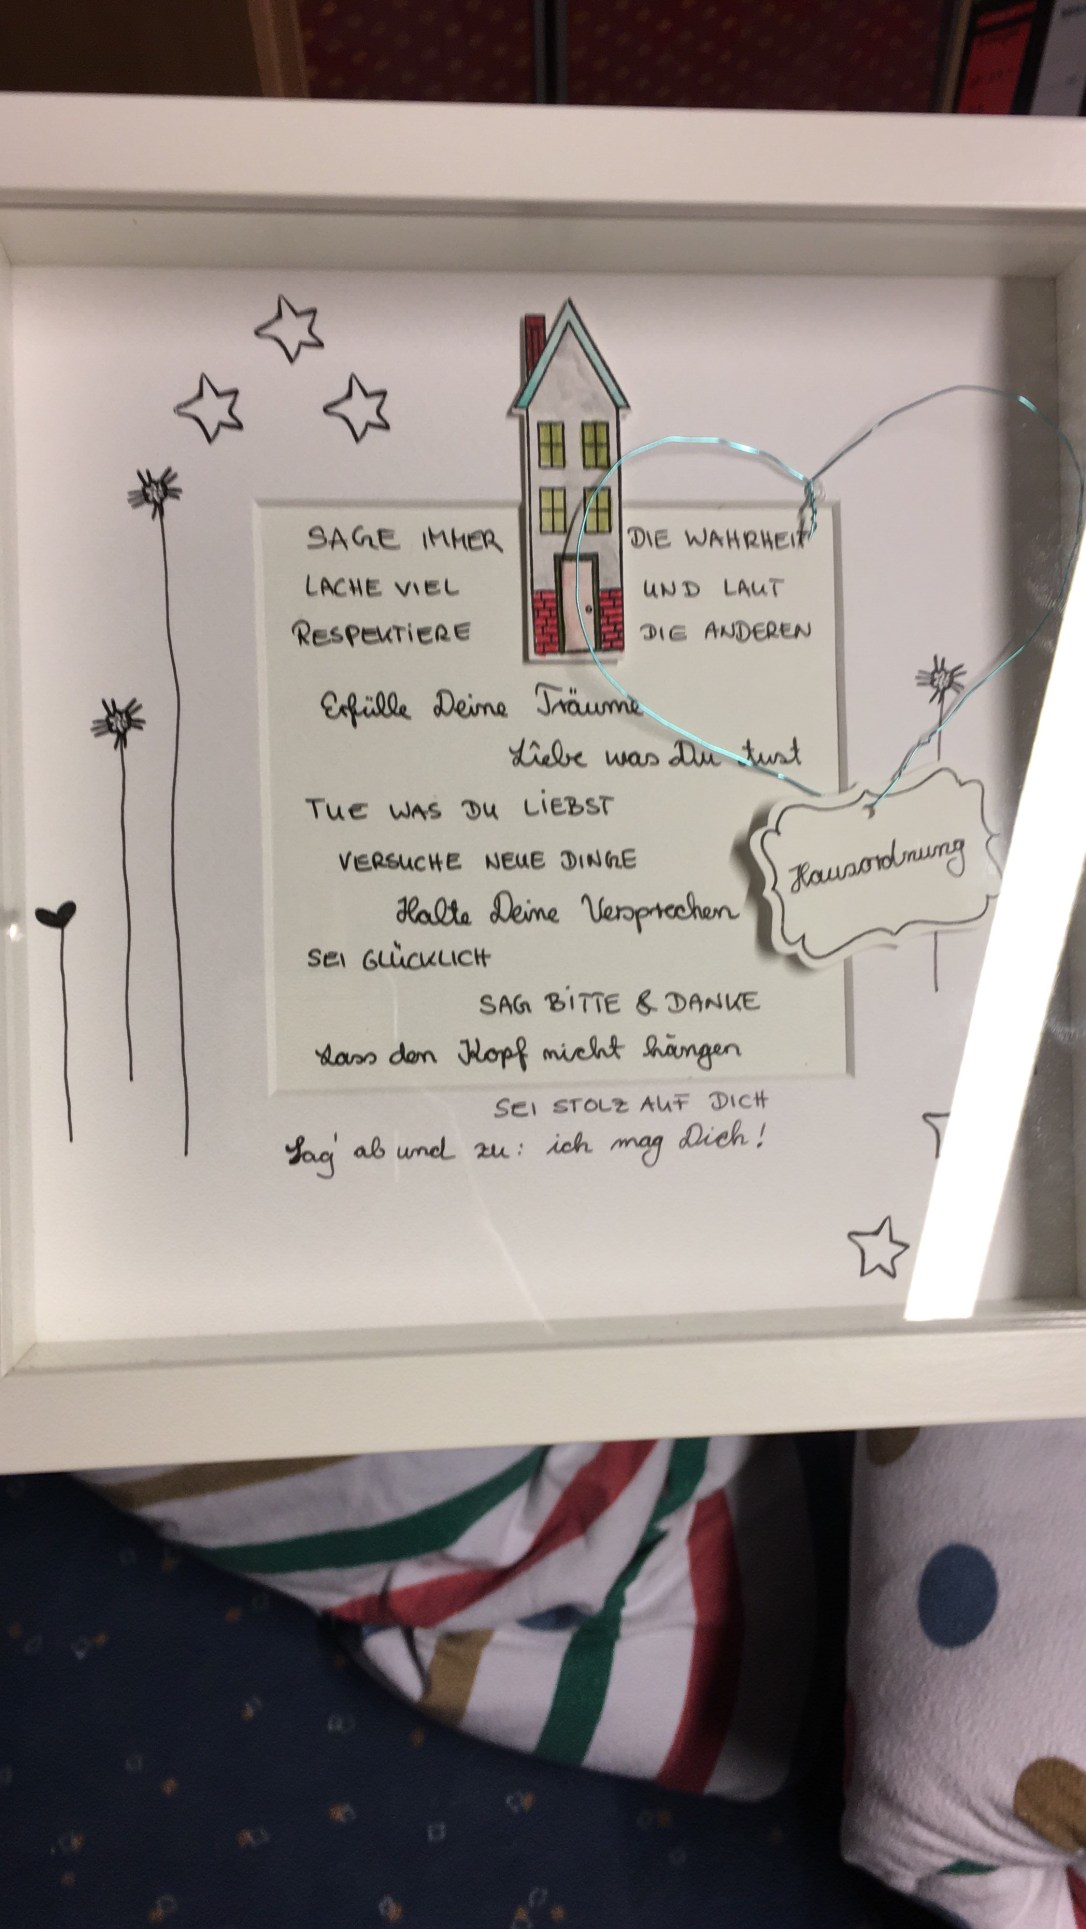 SAGE IMMER DIE WAHRHEIT
LACHE VIEL UND LAUT
RESPEKTIERE DIE ANDEREN
Erfülle Deine Träume
Liebe was Du tust
TUE WAS DU LIEBST
VERSUCHE NEUE DINGE
Hausordnung
Halte Deine Versprechen
SEI GLÜCKLICH
SAG BITTE & DANKE
Lass den Kopf nicht hängen
SEI STOLZ AUF DICH
Sag' ab und zu: ich mag Dich!